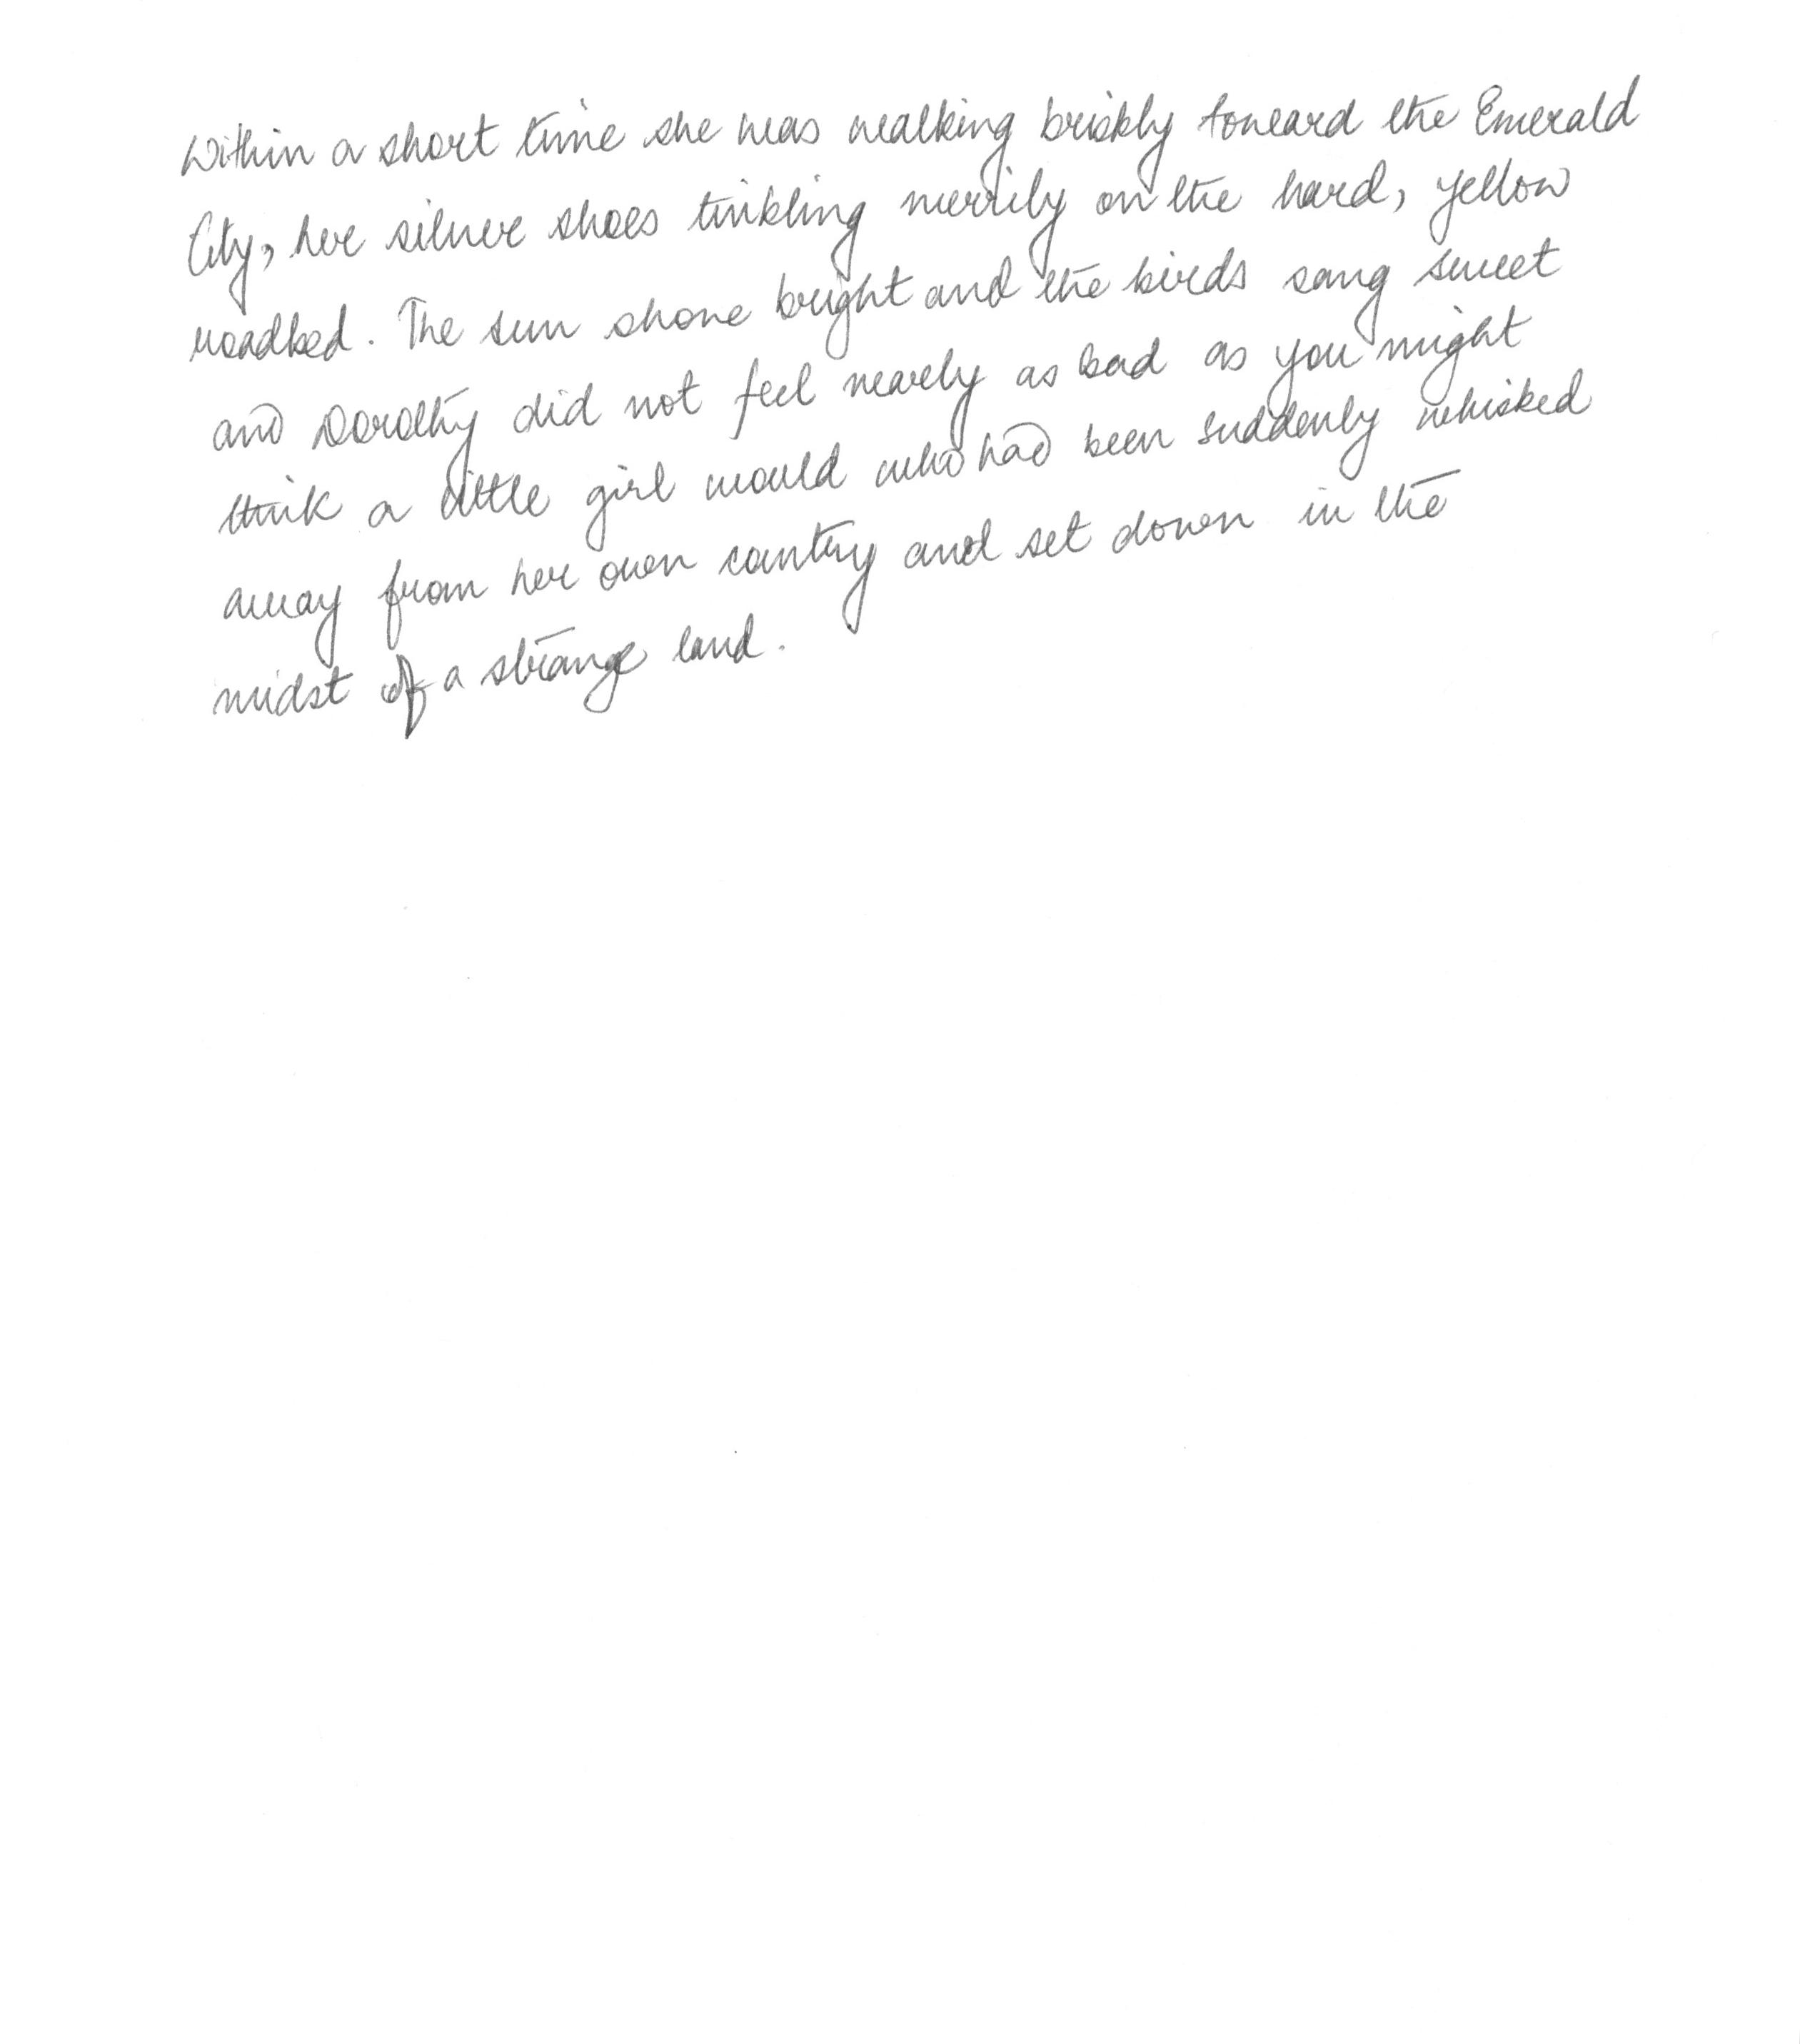 Within a short time she was walking briskly toward the Emerald
City, her silver shoes tinkling merrily on the hard, yellow
roadbed. The sun shone bright and the birds sang sweet
and Dorothy did not feel nearly as bad as you might
think a little girl would who had been suddenly whisked
away from her own country and set down in the
midst of a strange land.